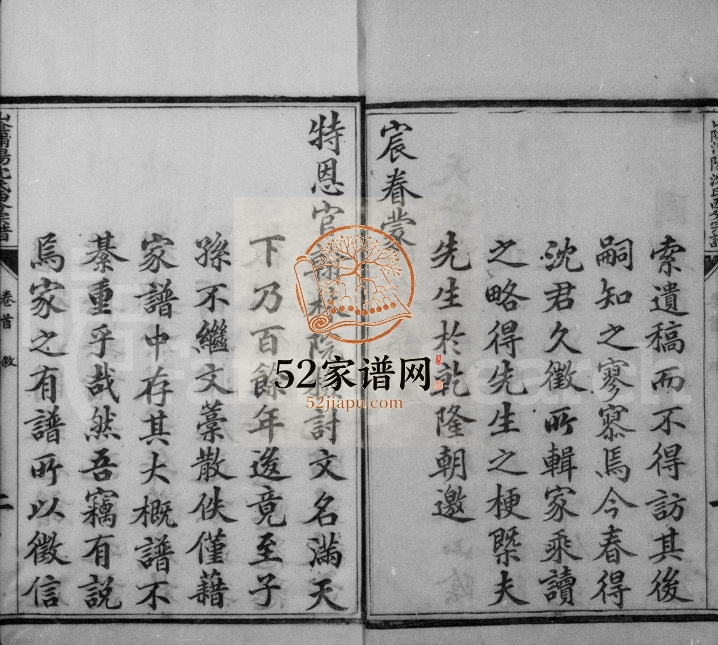 索遺稿而不得訪其後
嗣知之寥寥焉今春得
沈君久徵所輯家乘讀
之略得先生之梗槩夫
先生於乾隆朝邀
宸眷蒙
特恩官翰林院檢討文名滿天
下乃百餘年後竟至子
孫不繼文藁散佚僅藉
家譜中存其大概譜不
綦重乎哉然吾竊有說
焉家之有譜所以徵信
卷首 敘
二
52家谱网
52jiapu.com